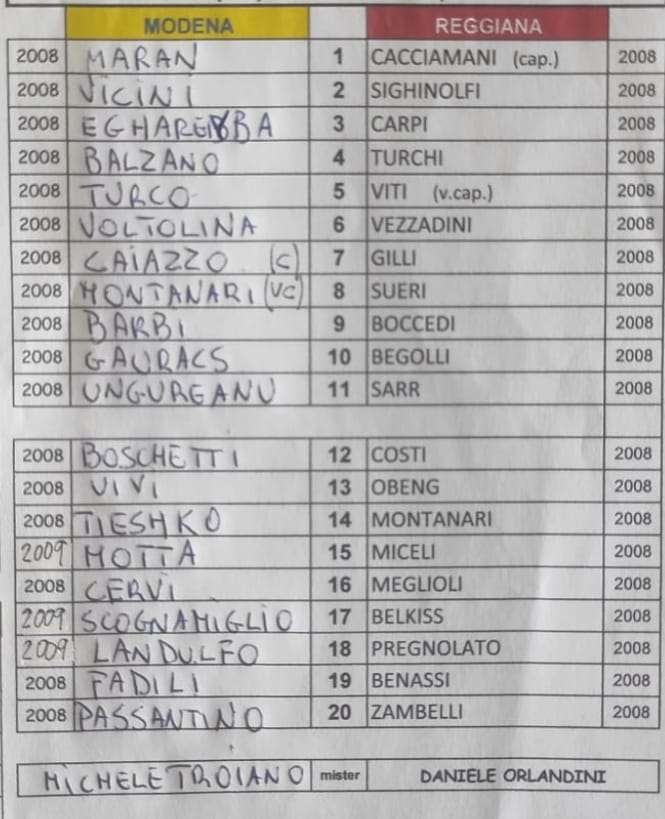 MODENA REGGIANA
2008 MARAN 1 CACCIAMANI (cap.) 2008
2008 VICINI 2 SIGHINOLFI 2008
2008 EGHAREBBA 3 CARPI 2008
2008 BALZANO 4 TURCHI 2008
2008 TURCO 5 VITI (v.cap.) 2008
2008 VOLTOLINA 6 VEZZADINI 2008
2008 CAIAZZO (C) 7 GILLI 2008
2008 MONTANARI (VC) 8 SUERI 2008
2008 BARBI 9 BOCCEDI 2008
2008 GAURACS 10 BEGOLLI 2008
2008 UNGUREANU 11 SARR 2008
2008 BOSCHETTI 12 COSTI 2008
2008 VIVI 13 OBENG 2008
2008 TIESHKO 14 MONTANARI 2008
2009 MOTTA 15 MICELI 2008
2008 CERVI 16 MEGLIOLI 2008
2009 SCOGNAMIGLIO 17 BELKISS 2008
2009 LANDULFO 18 PREGNOLATO 2008
2008 FADILI 19 BENASSI 2008
2008 PASSANTINO 20 ZAMBELLI 2008
MICHELE TROIANO mister DANIELE ORLANDINI